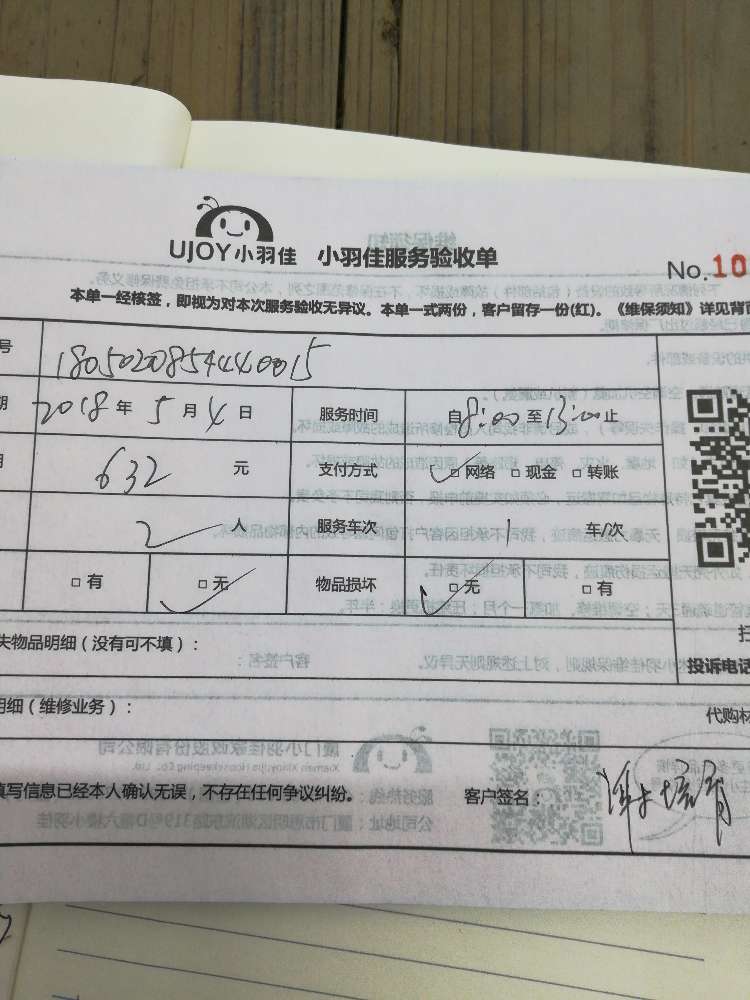 UJOY小羽佳 小羽佳服务验收单
No.10
本单一经核签，即视为对本次服务验收无异议。本单一式两份，客户留存一份(红)。《维保须知》详见背
号 1805020854440015
期 2018年5月4日 服务时间 自8:00至13:00止
632元 支付方式 □网络 □现金 □转账
2人 服务车次 1 车/次
□有 □无 物品损坏 □无 □有
失物品明细（没有可不填）：
投诉电话
明细（维修业务）：
代购材
填写信息已经本人确认无误，不存在任何争议纠纷。 客户签名：